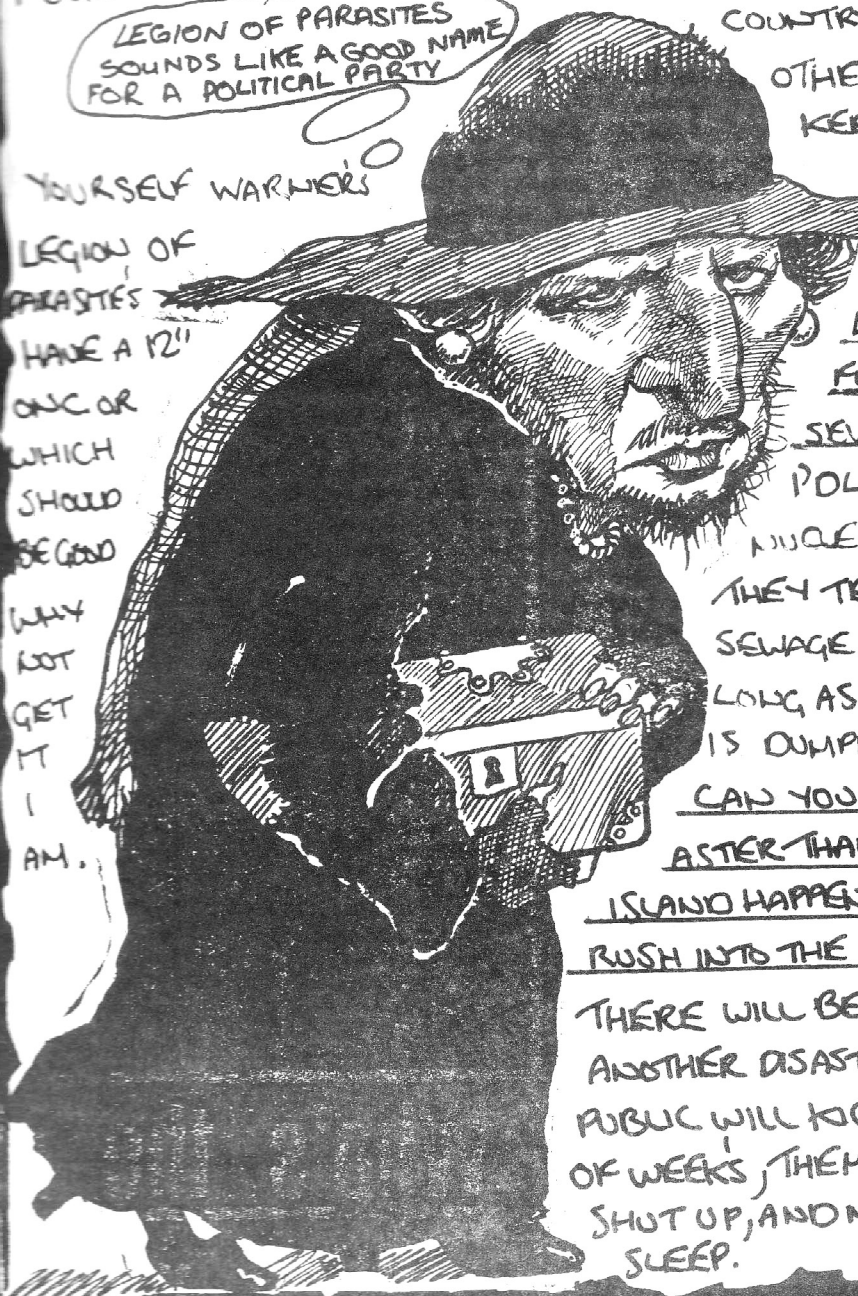 LEGION OF PARASITES
SOUNDS LIKE A GOOD NAME
FOR A POLITICAL PARTY
YOURSELF WARNER'S
LEGION OF
PARASITE'S
HAVE A 12"
ONC OR
WHICH
SHOULD
BE GOOD
WHY
NOT
GET
IT
I
AM.
COUNTR
OTHE
KEE
SEW
POL
NUCLE
THEY TE
SEWAGE
LONG AS
IS DUMP
CAN YOU
ASTER THA
ISLAND HAPPEN
RUSH INTO THE
THERE WILL BE
ANOTHER DISAST
PUBLIC WILL KIC
OF WEEK'S, THEM
SHUT UP, AND
SLEEP.